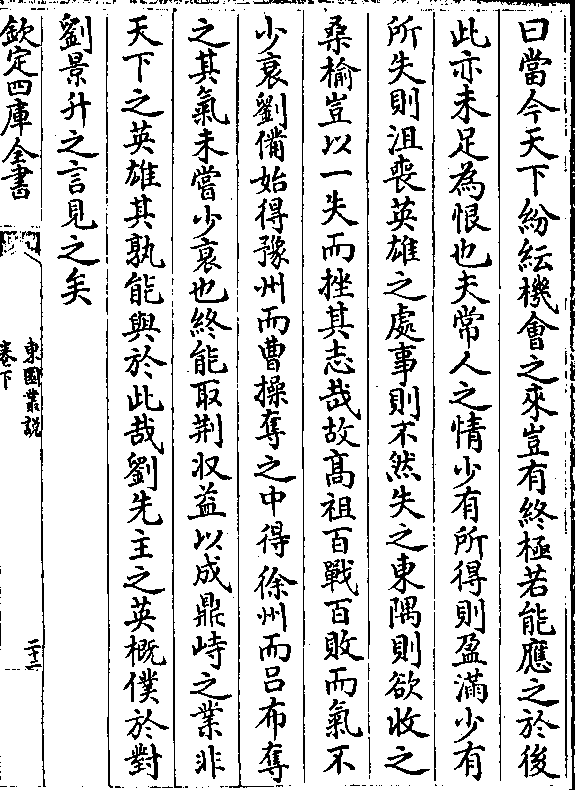 曰當今天下紛紜機會之來豈有終極若能應之於後
此亦未足為恨也夫常人之情少有所得則盈滿少有
所失則沮喪英雄之處事則不然失之東隅則欲收之
桑榆豈以一失而挫其志哉故高祖百戰百敗而氣不
少衰劉備始得豫州而曹操奪之中得徐州而吕布奪
之其氣未嘗少衰也終能取荆収益以成鼎峙之業非
天下之英雄其孰能與於此哉劉先主之英概僕於對
劉景升之言見之矣
欽定四庫全書
東園叢説
卷下
二十二